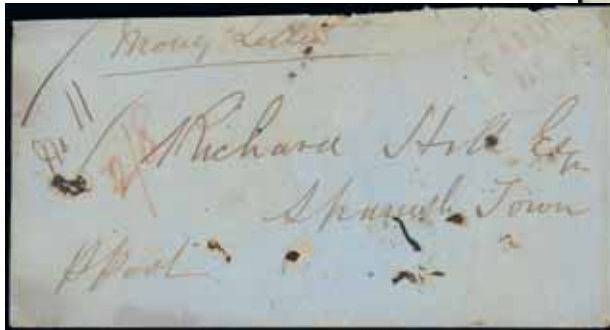 Money Letter
No 11
2/8
Richard Hill Esq
Spanish Town
P Post